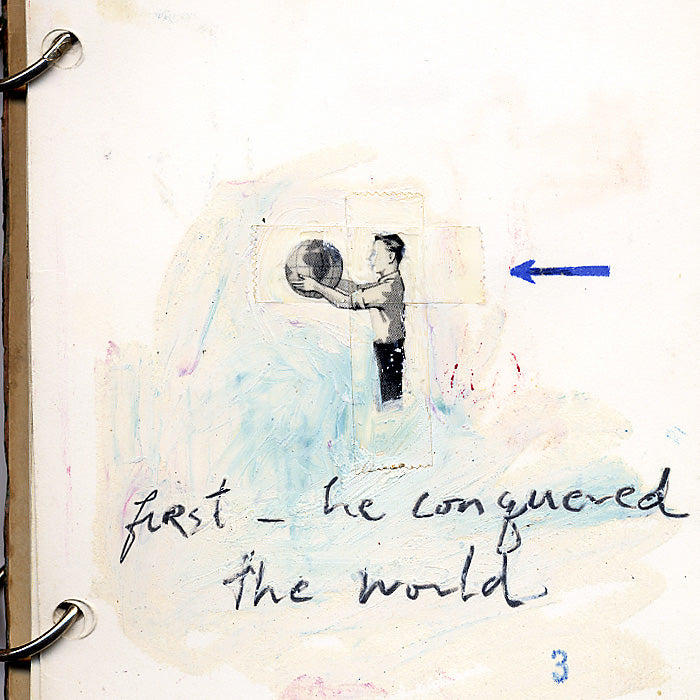 first – he conquered
the world
3